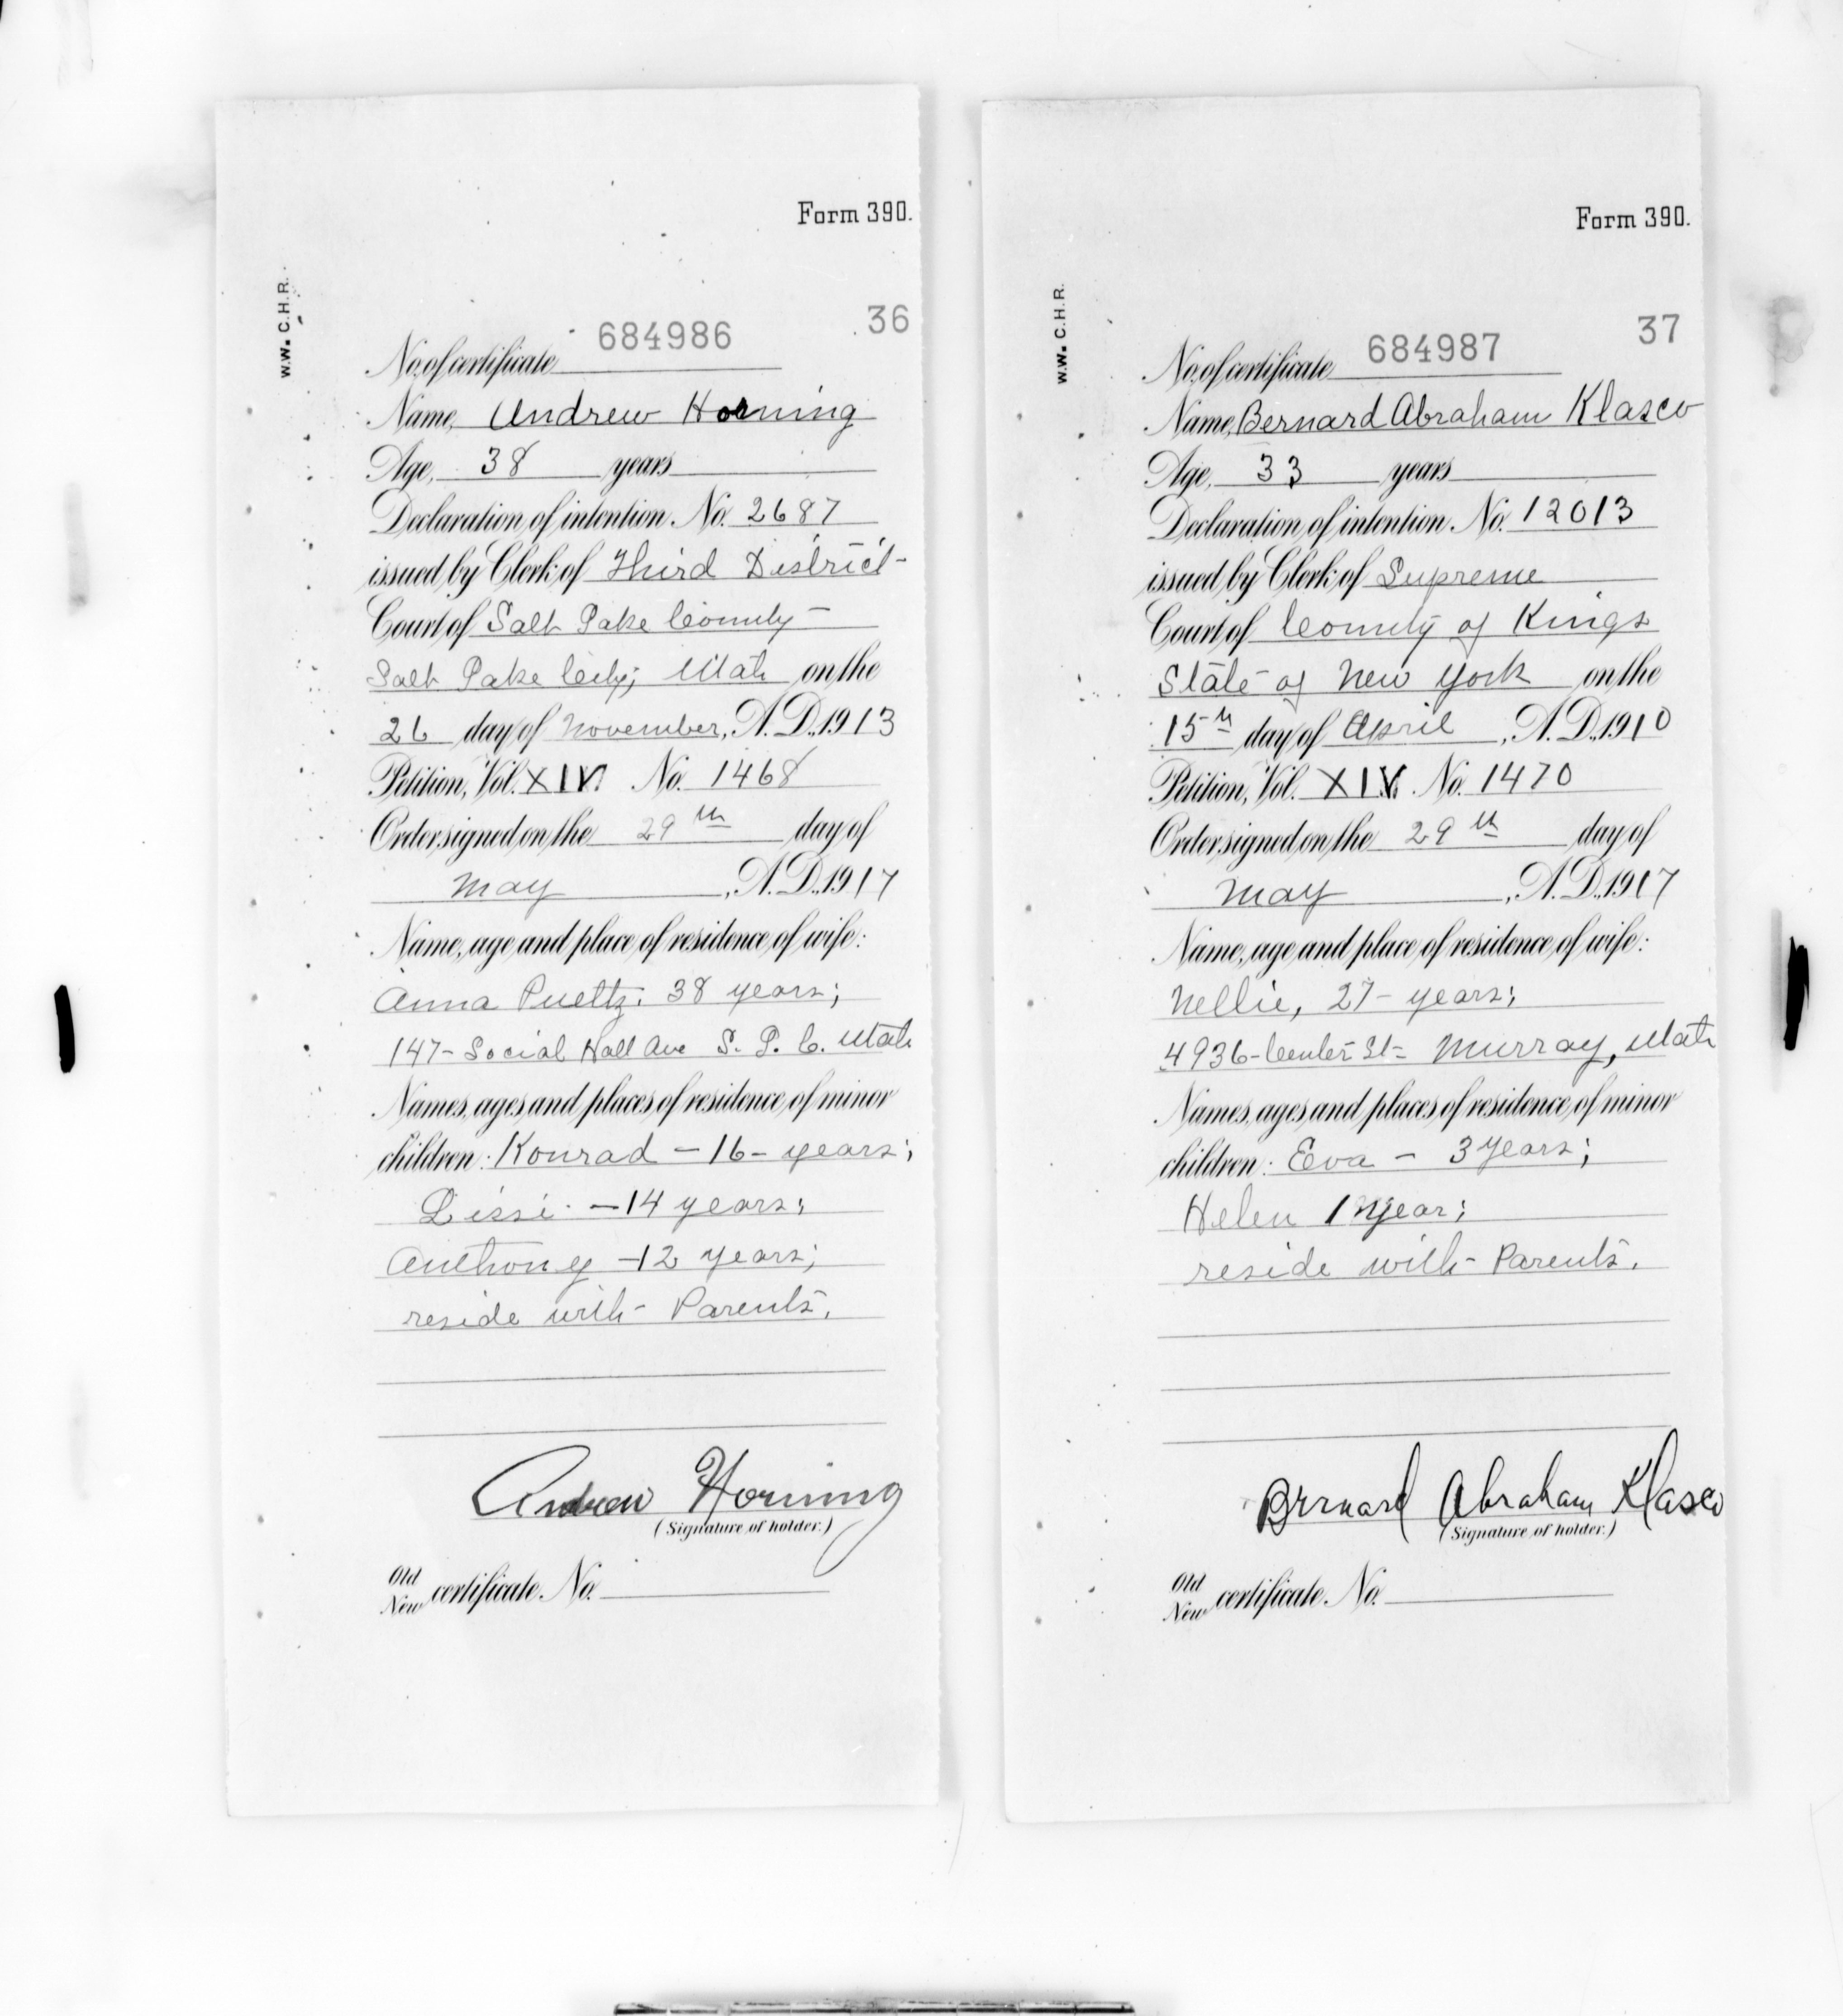 Form 390.
W.W. C.H.R.
36
No. of certificate 684986
Name, Andrew Horning
Age, 38 years
Declaration of intention No. 2687
issued by Clerk of Third District
Court of Salt Lake County
Salt Lake City, Utah on the
26 day of November, A.D. 1913
Petition, Vol. XIV. No. 1468
Order signed on the 29th day of
May, A.D. 1917
Name, age and place of residence of wife:
Anna Pueltz; 38 years;
147- Social Hall Ave S. L. C. Utah
Names, ages and places of residence of minor
children: Konrad - 16 - years;
Lissi - 14 years;
Anthony - 12 years;
reside with Parents.
Andrew Horning
(Signature of holder.)
Old
New certificate No.
Form 390.
W.W. C.H.R.
37
No. of certificate 684987
Name, Bernard Abraham Klasco
Age, 33 years
Declaration of intention No. 12013
issued by Clerk of Supreme
Court of County of Kings
State of New York on the
15th day of April, A.D. 1910
Petition, Vol. XIV. No. 1470
Order signed on the 29th day of
May, A.D. 1917
Name, age and place of residence of wife:
Nellie, 27 - years;
4936- Center St- Murray, Utah
Names, ages and places of residence of minor
children: Eva - 3 years;
Helen 1 year;
reside with Parents.
Bernard Abraham Klasco
(Signature of holder.)
Old
New certificate No.